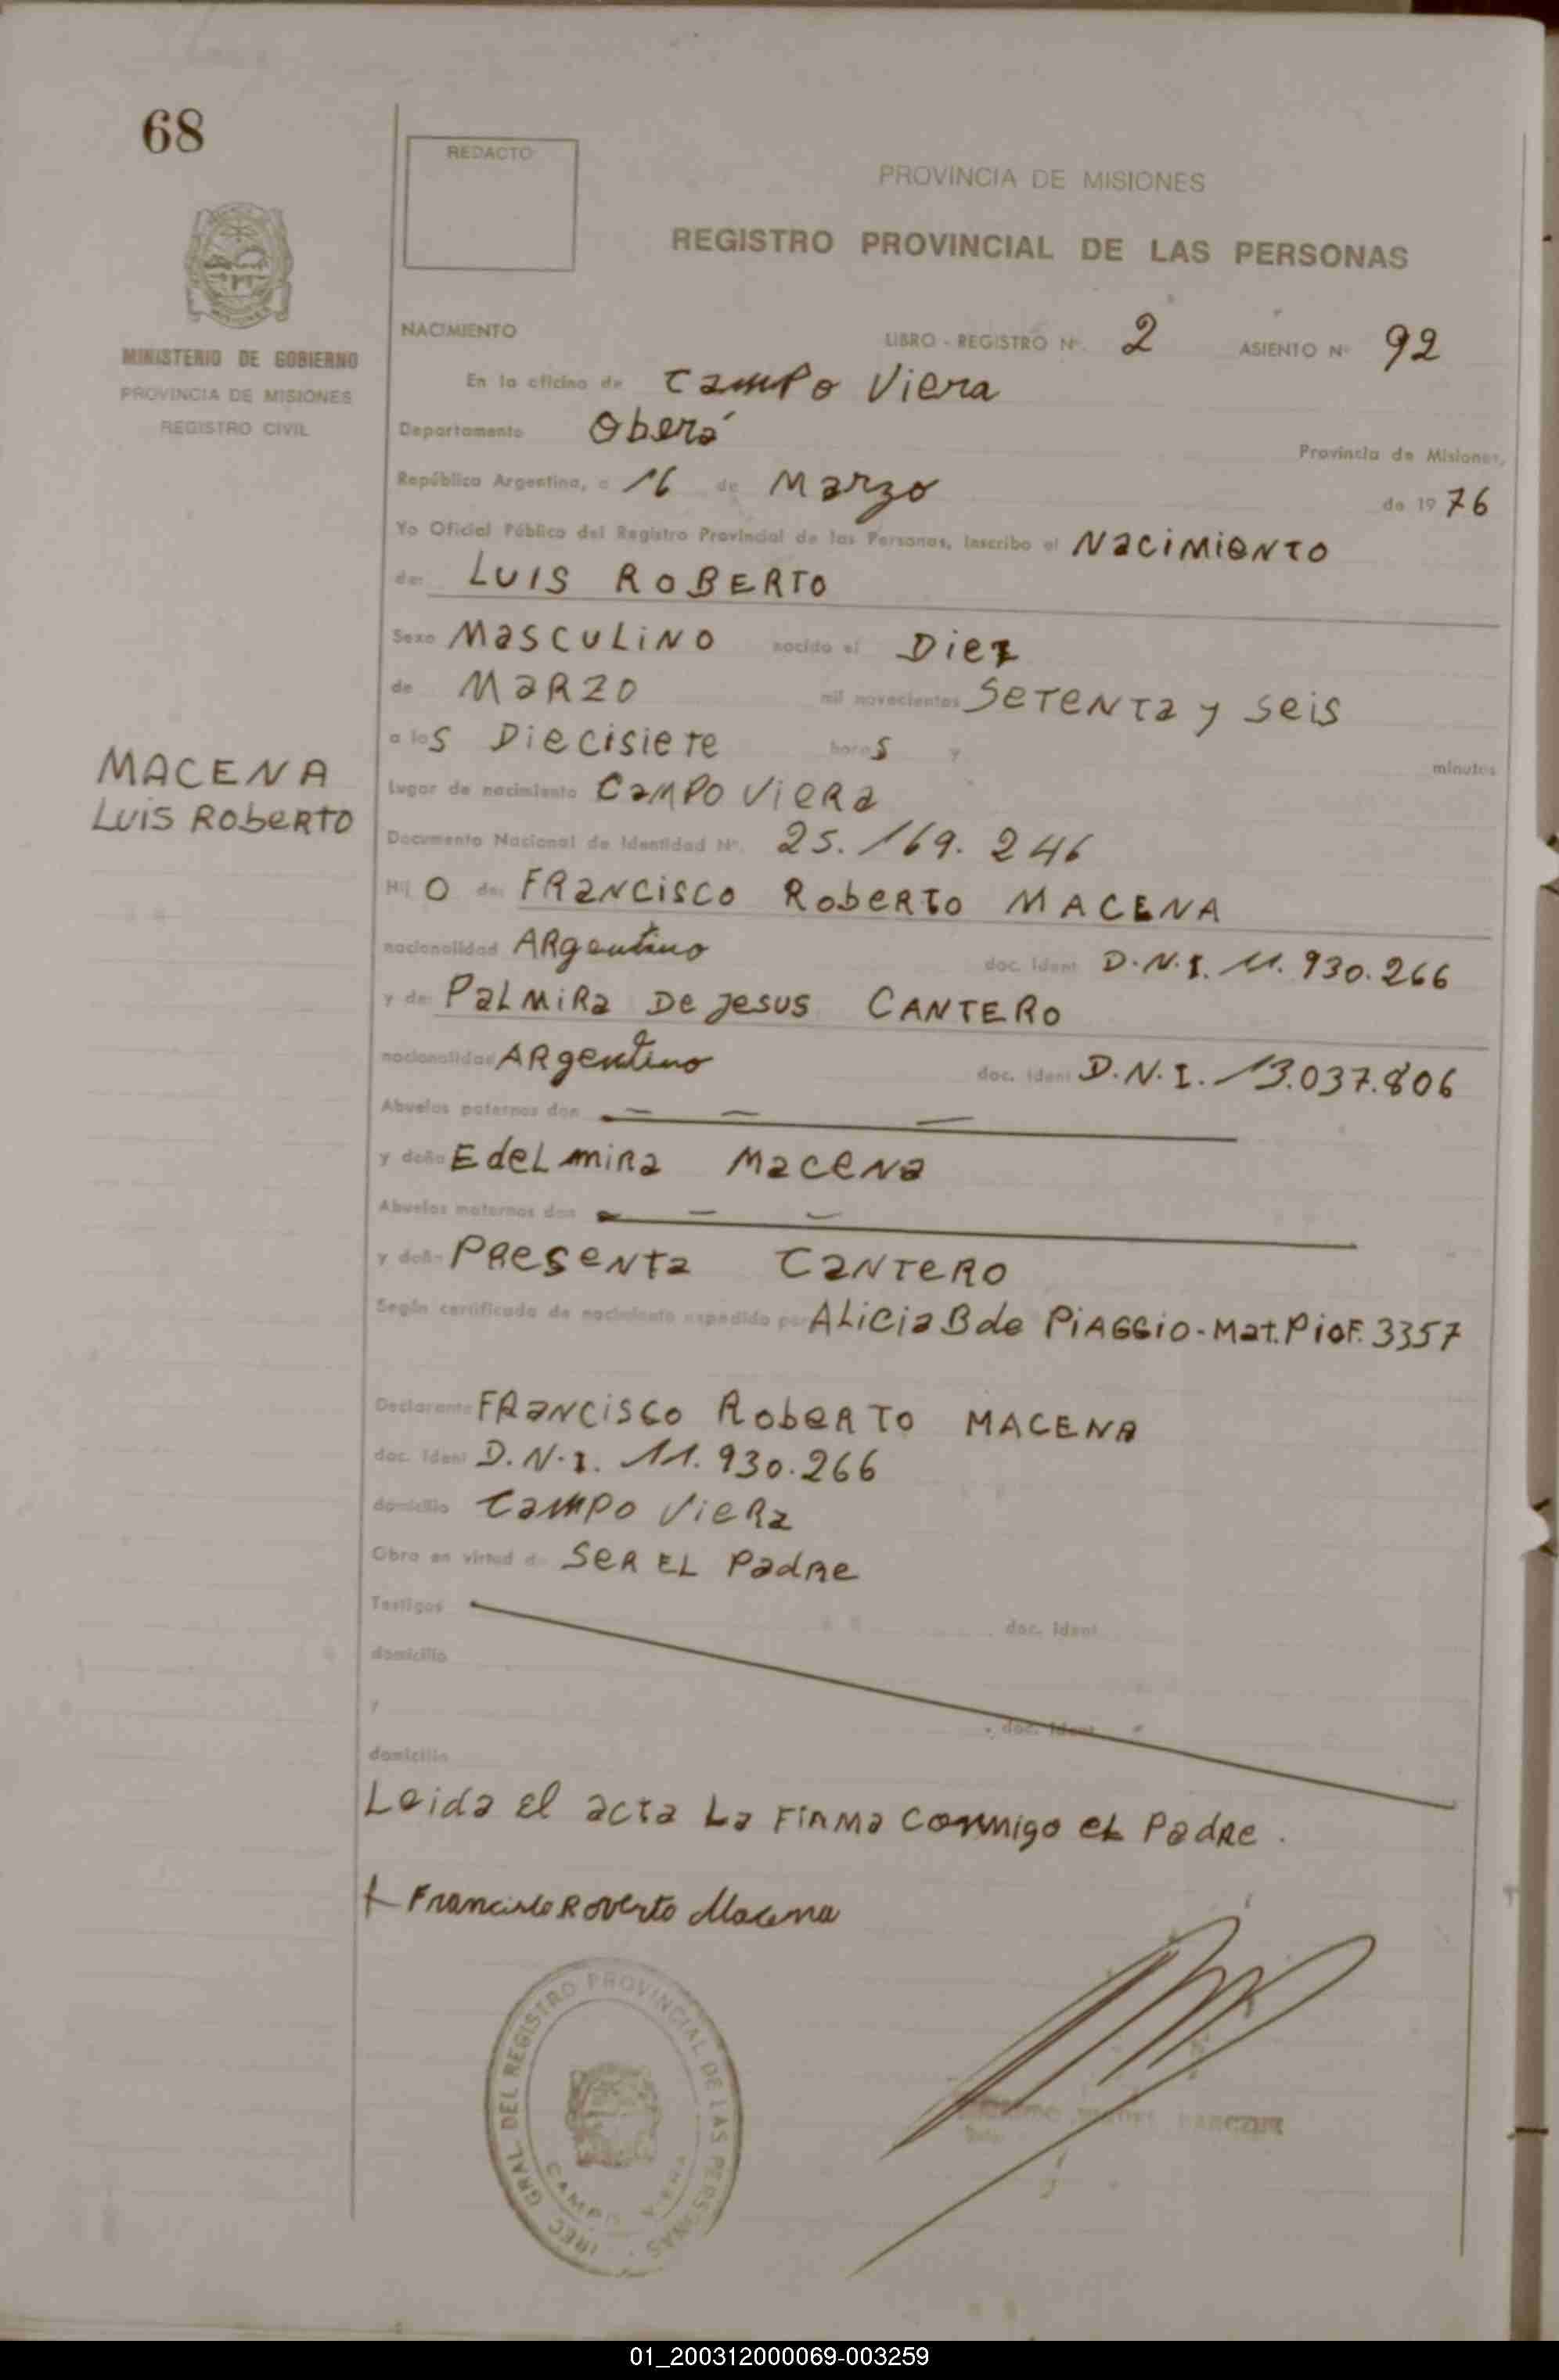 68
REDACTO
PROVINCIA DE MISIONES
REGISTRO PROVINCIAL DE LAS PERSONAS
MINISTERIO DE GOBIERNO
PROVINCIA DE MISIONES
REGISTRO CIVIL
NACIMIENTO LIBRO - REGISTRO Nº. 2 ASIENTO Nº 92
En la oficina de Campo Viera
Departamento Oberá Provincia de Misiones,
República Argentina, a 16 de Marzo de 1976
Yo Oficial Público del Registro Provincial de las Personas, inscribo el Nacimiento
de: LUIS ROBERTO
Sexo Masculino nacido el Diez
de Marzo mil novecientos Setenta y seis
a los Diecisiete horas y minutos
MACENA
Luis Roberto
Lugar de nacimiento Campo Viera
Documento Nacional de Identidad Nº. 25.169.246
Hijo de: Francisco Roberto MACENA
nacionalidad Argentino doc. ident D.N.I. 11.930.266
y de: Palmira De Jesus CANTERO
nacionalidad Argentina doc. ident D.N.I. 13.037.806
Abuelos paternos don — — —
y doña Edelmira Macena
Abuelos maternos don — —
y doña Presenta Cantero
Según certificado de nacimiento expedido por Alicia B de Piaggio - Mat. Prof. 3357
Declarante Francisco Roberto MACENA
doc. ident D.N.I. 11.930.266
domicilio Campo Viera
Obra en virtud de Ser el Padre
Testigos doc. ident
domicilio
y doc. ident
domicilio
Leida el acta La Firma conmigo el Padre.
Francisco Roverto Macena
GRAL DEL REGISTRO PROVINCIAL DE LAS PERSONAS
CAMPO VIERA
01_200312000069-003259